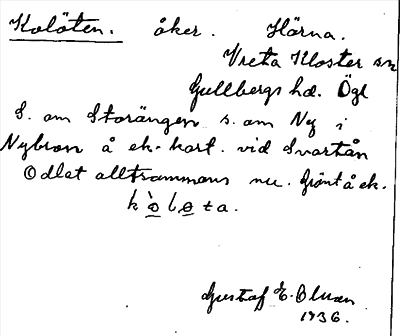 Kolöten. åker. Härna.
Vreta Kloster sn
Gullbergs hd. Ögl
S. om Storängen s. om Ny i
Nybron å ek-kart. vid Svartån
Odlat alltsammans nu. Grönt å ek.
kòlɵta.
Gustaf E.
1936.